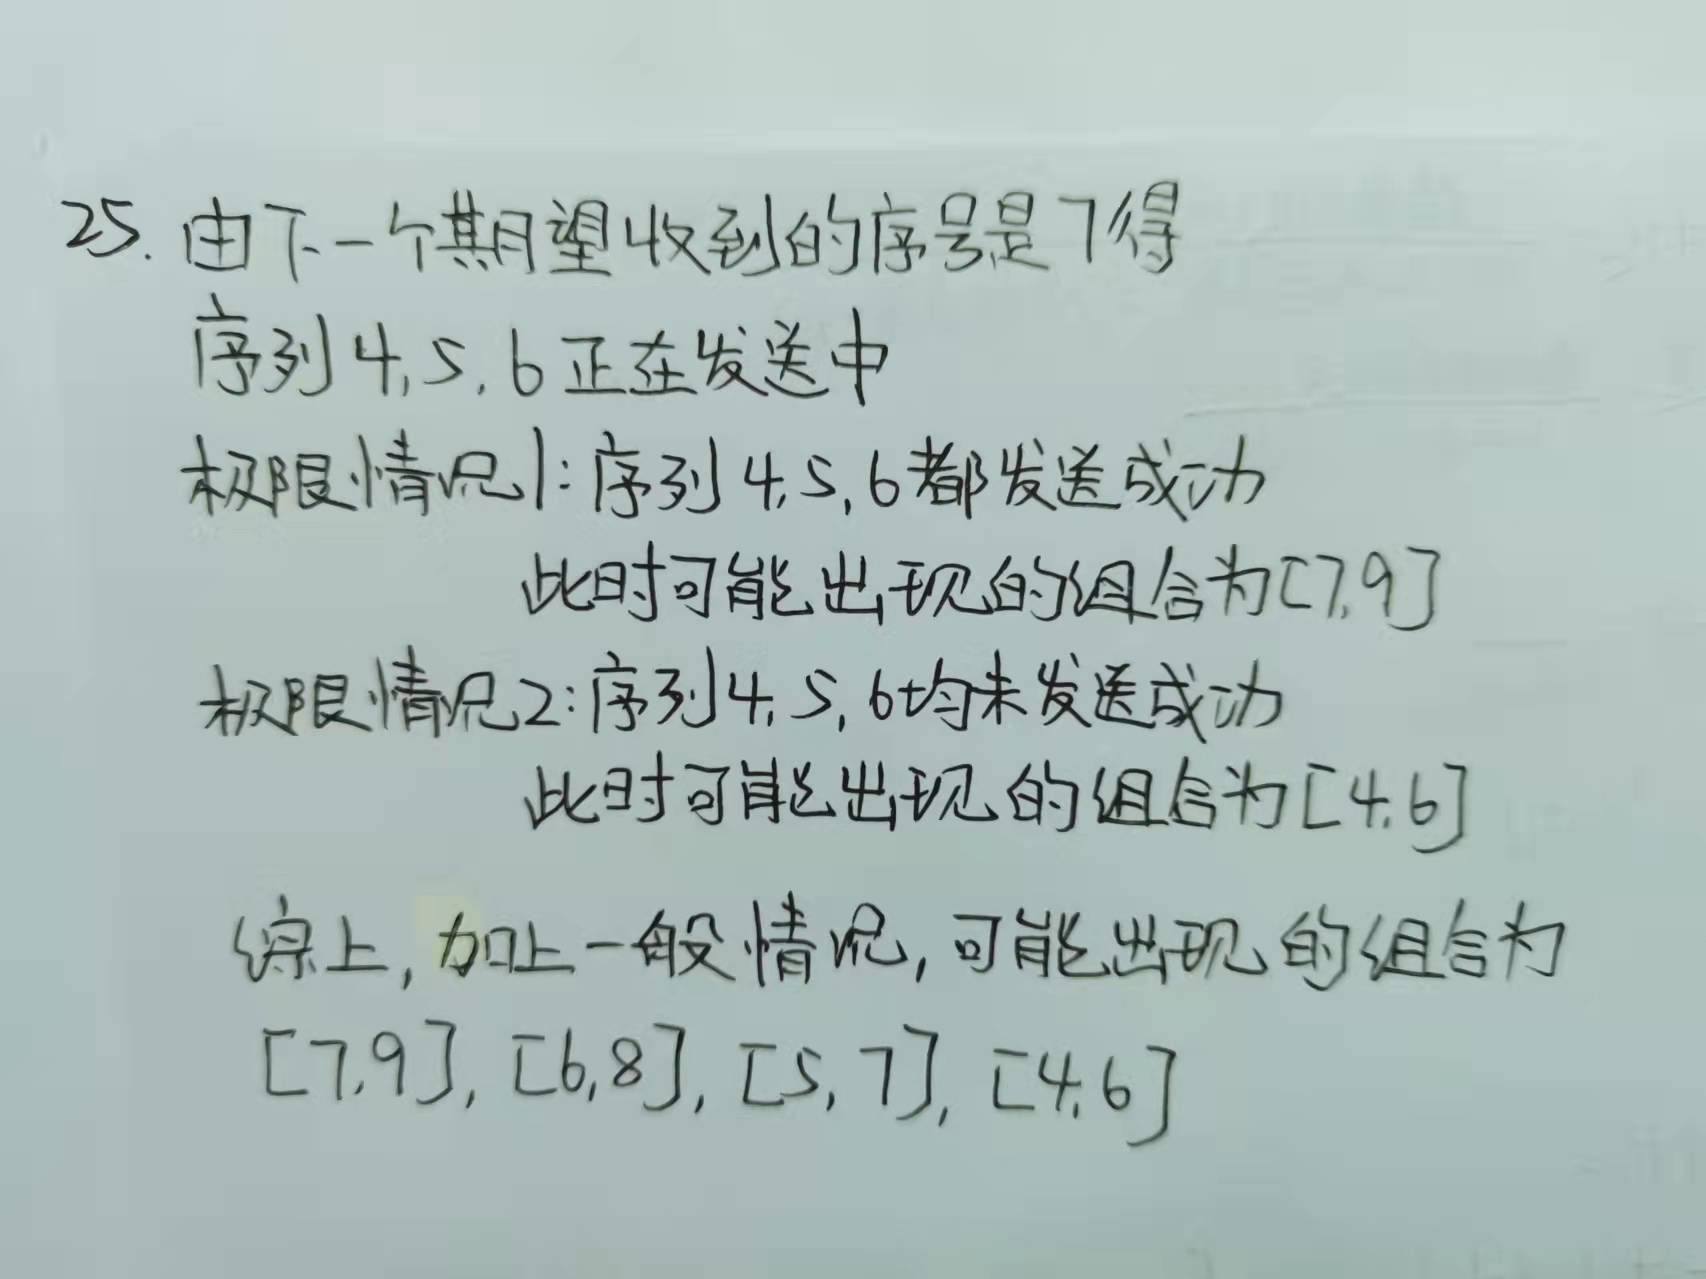 25. 由下一个期望收到的序号是7得
序列4,5,6正在发送中
极限情况1:序列4,5,6都发送成功
此时可能出现的组合为[7,9]
极限情况2:序列4,5,6均未发送成功
此时可能出现的组合为[4,6]
综上,加上一般情况,可能出现的组合为
[7,9],[6,8],[5,7],[4,6]